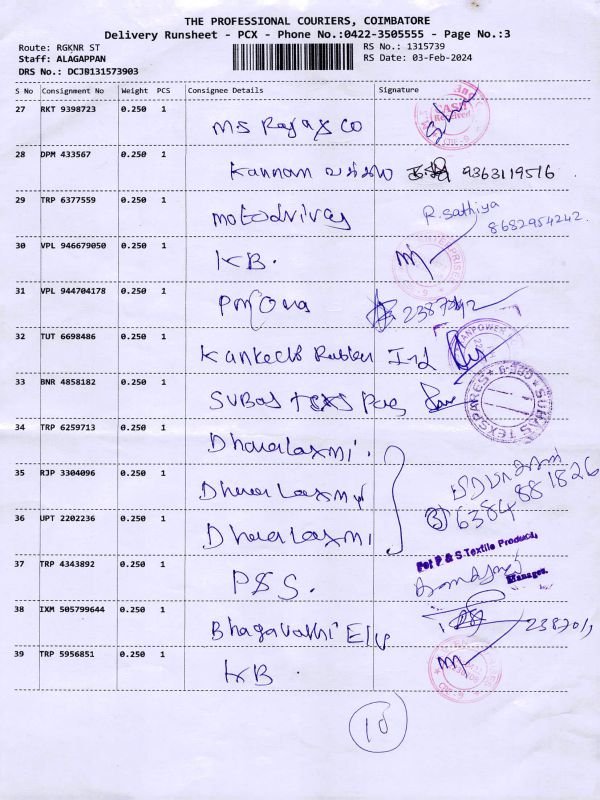 THE PROFESSIONAL COURIERS, COIMBATORE
Delivery Runsheet - PCX - Phone No.:0422-3505555 - Page No.:3
Route: RGKNR ST
RS No.: 1315739
Staff: ALAGAPPAN
RS Date: 03-Feb-2024
DRS No.: DCJB131573903
S No Consignment No Weight PCS Consignee Details Signature
27 RKT 9398723 0.250 1
CASH Received
28 DPM 433567 0.250 1 Kannan 9363119516
29 TRP 6377559 0.250 1 R. Sathiya
8682954242.
30 VPL 946679050 0.250 1 KB.
ENTERPRISES
31 VPL 944704178 0.250 1
32 TUT 6698486 0.250 1 Rubber Ind
MANPOWER
33 BNR 4858182 0.250 1 SUBAS
SUBAS TEXSPARES
34 TRP 6259713 0.250 1 Dhanalaxmi.
35 RJP 3304096 0.250 1 Dhanalaxmi
36 UPT 2202236 0.250 1 Dhanalaxmi
6384881826
37 TRP 4343892 0.250 1 P&S.
For P & S Textile Products,
Manager.
38 IXM 505799644 0.250 1 Bhagavathi
39 TRP 5956851 0.250 1 KB.
10